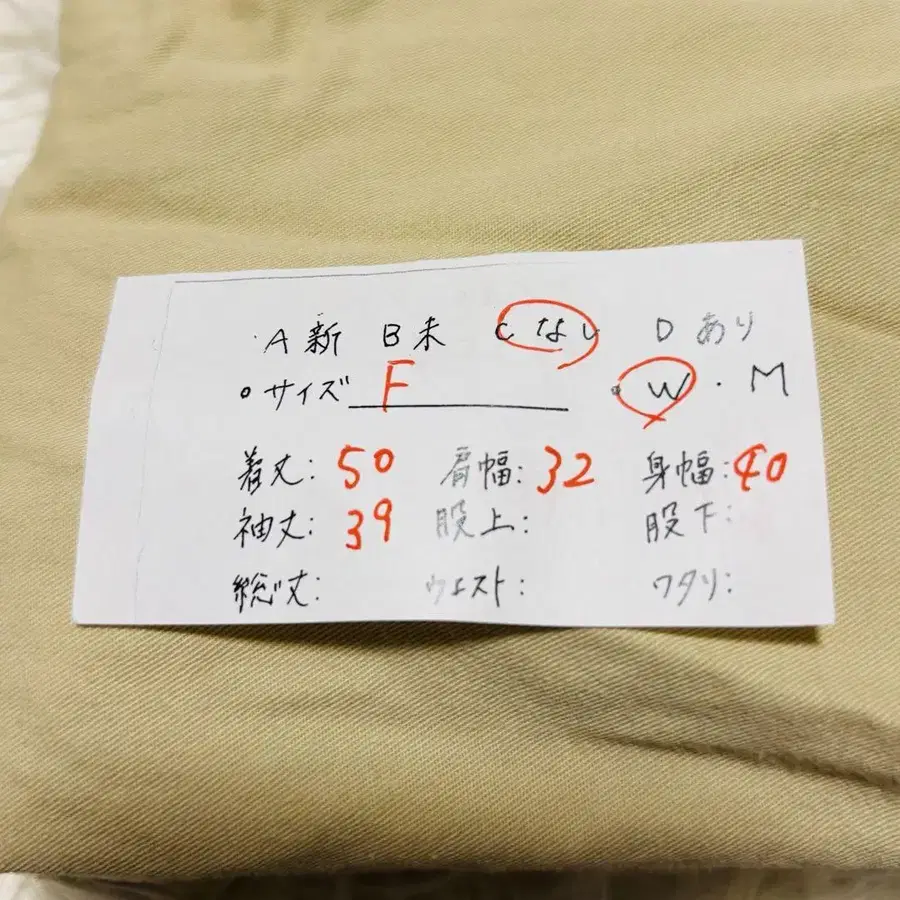 ・A 新 B未 C なし D あり
○ サイズ F ・W・M
着丈: 50 肩幅: 32 身幅: 40
袖丈: 39 股上: 股下:
総丈: ウエスト: ワタリ: